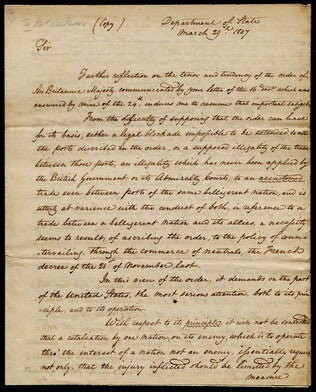 (Copy)
Department of State
March 29th 1807
Sir,
Further reflection on the tenor and tendency of the order of
His Britannic Majesty, communicated by your letter of the 12th inst which was
answered by mine of the 24th induces me to resume that important subject.
From the difficulty of supposing that the order can have
for its basis, either a legal blockade impossible to be extended to all
the ports described in the order, or a supposed illegality of the trade
between those ports, an illegality which has never been applied by
the British Government or its Admiralty Courts to an accustomed
trade even between ports of the same belligerent nation, and is
utterly at variance with the conduct of both, in reference to a
trade between a belligerent nation and its allies, a necessity
seems to result, of ascribing the order, to the policy of coun-
tervailing, through the commerce of neutrals, the French
decree of the 21st of November last.
In this view of the order, it demands on the part
of the United States, the most serious attention, both to its prin-
ciple, and to its operation.
With respect to its principle, it will not be contested
that a retaliation by one nation, on its enemy, which is to operate
thro' the interest of a nation not an enemy, essentially requires
not only, that the injury inflicted should be limited by the
measure